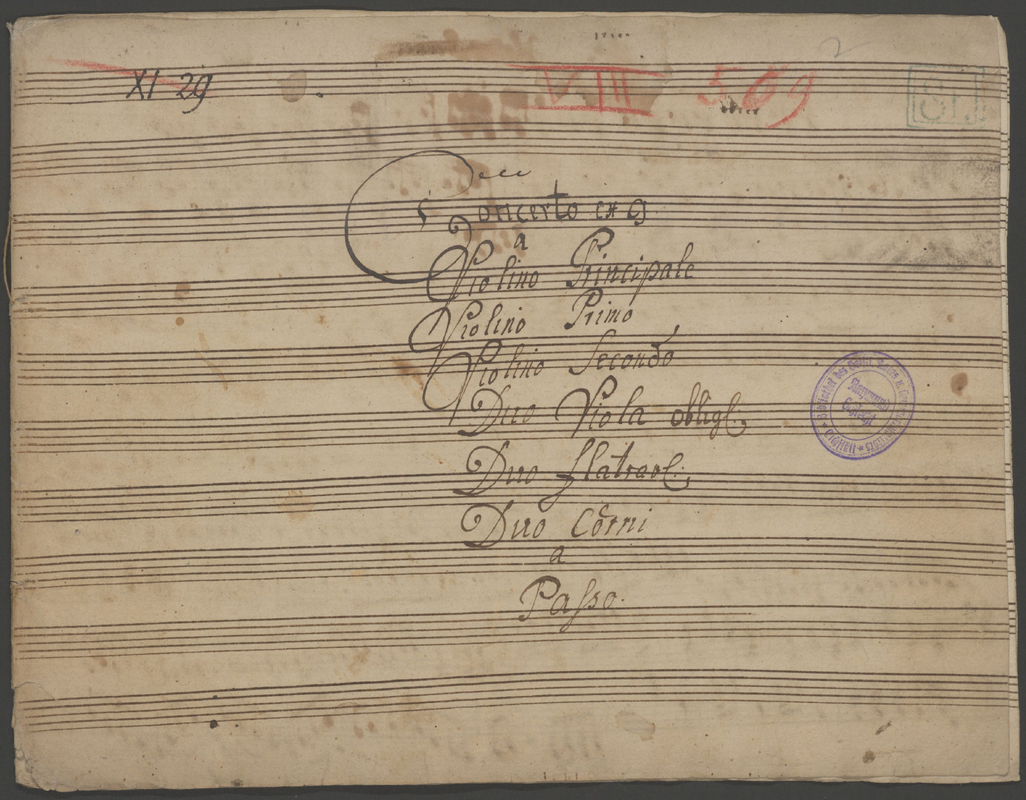 XI 29
VIII 509
Concerto ex G
a
Violino Principale
Violino Primo
Violino Secondo
Duo Viola obligl:
Duo flatraol:
Duo Corni
a
Passo.